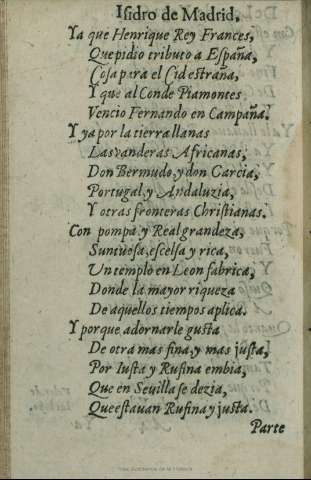 Isidro de Madrid.
Ya que Henrique Rey Frances,
Que pidio tributo a España,
Cosa para el Cid estraña,
Y que al Conde Piamontes
Vencio Fernando en Campaña.
Y ya por la tierra llanas
Las vanderas Africanas,
Don Bermudo, y don Garcia,
Portugal, y Andaluzia,
Y otras fronteras Christianas.
Con pompa y Real grandeza,
Suntuosa, escelsa y rica,
Un templo en Leon fabrica,
Donde la mayor riqueza
De aquellos tiempos aplica.
Y porque adornarle gusta
De otra mas fina, y mas justa,
Por Iusta y Rufina embia,
Que en Seuilla se dezia,
Que estauan Rufina y justa.
Parte